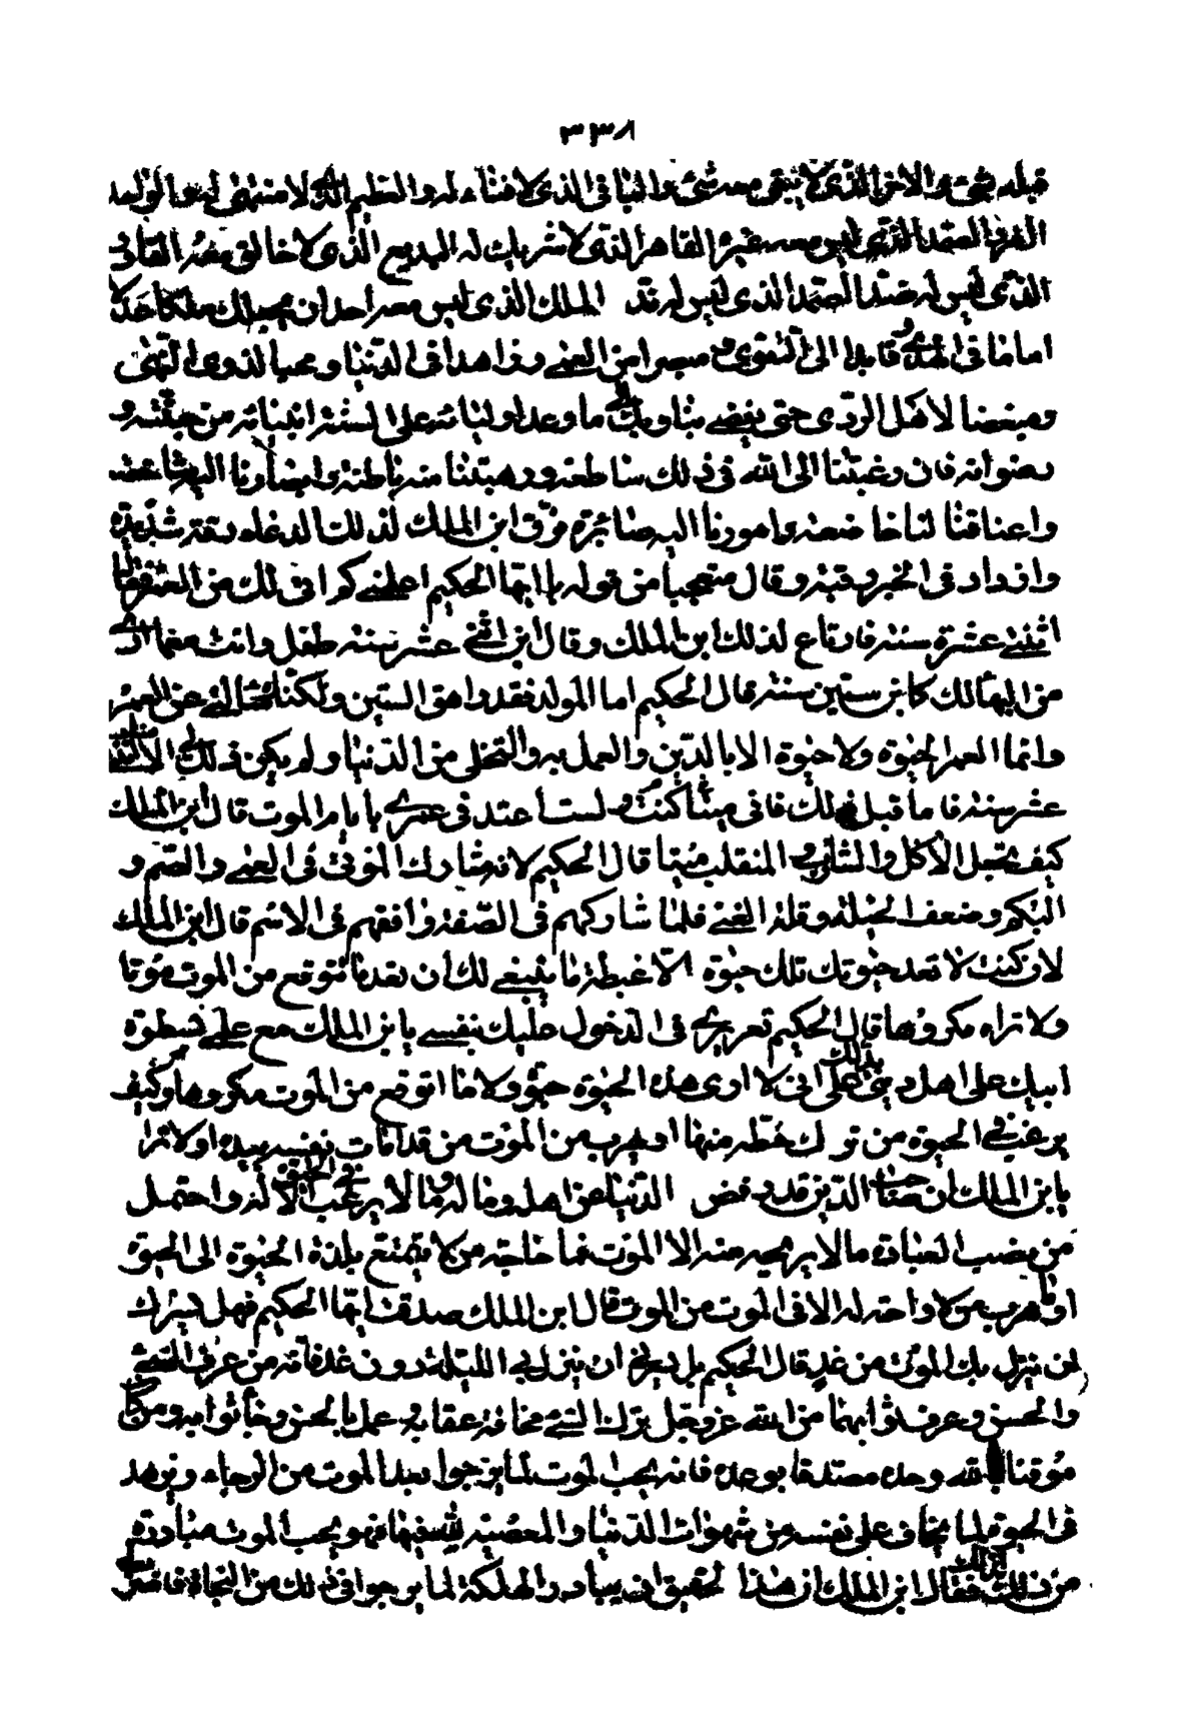 ٣٣٨
قبله شئ والاخر الذي لا يبقى معه شئ والباقى الذى لا فناء له والعظيم الذى لا منتهى له والواحد
الفرد الصمد الذى ليس معه غيره القاهر الذى لا شريك له البديع الذى لا خالق معه القادر
الذى ليس له ضد الصمد الذى ليس له ند الملك الذى ليس معه أحد ان يجعلك ملكا عدلا
اماما فى الهدى وقائدا الى التقوى ومبصرا من العمى وزاهدا فى الدنيا ومحبا لذوى النهى
ومبغضا لاهل الردى حتى يفضى بنا وبك الى ما وعد اوليائه على السنة انبيائه من جنته و
رضوانه فان رغبتنا الى الله فى ذلك ساطعة ورهبتنا منه باطنة وابصارنا اليه شاخصة
واعناقنا له خاضعة وامورنا اليه صائرة فرق ابن الملك لذلك الدعاء رقة شديدة
وازداد فى الخير رغبة وقال متعجبا من قوله يا ايها الحكيم اعلمنى كم اتى لك من العمر فقال
اثنتى عشرة سنة فارتاع لذلك ابن الملك وقال ابن اثنتى عشر سنة طفل وانت مع ما ارى
من الكهالك كابن ستين سنة قال الحكيم اما المولد فقد راهق الستين ولكنك سئلتنى عن العمر
وانما العمر الحيوة ولا حيوة الا بالدين والعمل به والتخلى من الدنيا ولم يكن ذلك لى الا منذ اثنتى
عشر سنة فاما قبل ذلك فانى ميتا كنت ولست اعتد فى عمرى بايام الموت قال ابن الملك
كيف تجعل الاكل والشارب والمتقلب ميتا قال الحكيم لانه شارك الموتى فى العمى والصم و
البكم وضعف الحيلة وقلة الغنى فلما شاركهم فى الصفة وافقهم فى الاسم قال ابن الملك
لان كنت لا تعد حيوتك تلك حيوة ولا غبطة ما ينبغى لك ان تعد ما تتوقع من الموت موتا
ولا تراه مكروها قال الحكيم تعريرى فى الدخول عليك بنفسى يا بن الملك مع علمى بسطوة
ابيك على اهل دينى يدلك على انى لا ارى هذه الحيوة حيوة ولا ما اتوقع من الموت مكروها وكيف
يرغب فى الحيوة من ترك حظه منها او يهرب من الموت من قد امات نفسه بيده اولا ترى
يا بن الملك ان صاحب الدين قد رفض الدنيا من اهله وماله وما لا يرغب فى الحيوة الا له واحتمل
من نصب العبادة ما لا يريحه منه الا الموت فما حاجة من لا يتمتع بلذة الحيوة الى الحيوة
او مهرب من لا راحة له الا فى الموت من الموت قال ابن الملك صدقت ايها الحكيم فهل يسرك
ان ينزل بك الموت من غد قال الحكيم بل يسرنى ان ينزل بى الليلة دون غد فانه من عرف السيئ
والحسن وعرف ثوابهما من الله عز وجل ترك السيئ مخافة عقابه وعمل بالحسن رجاء ثوابه ومن كان
موقنا بالله وحده مصدقا بوعده فانه يحب الموت لما يرجوا بعد الموت من الرجاء ويزهد
فى الحيوة لما يخاف على نفسه من شهوات الدنيا والمعصية لله فيها فهو يحب الموت مبادرة
من ذلك فقال ابن الملك ان هذا لخليق ان يبادر الهلكة لما يرجوا فى ذلك من النجاة فاضرب